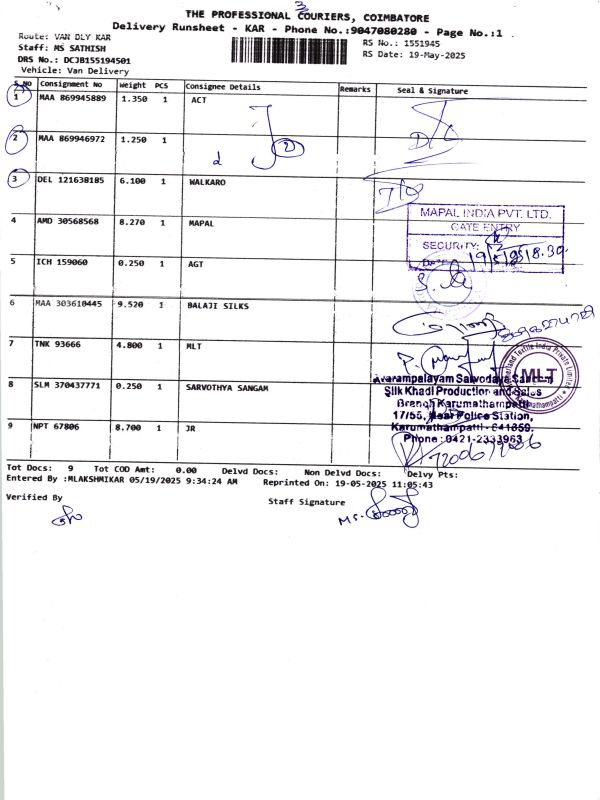 THE PROFESSIONAL COURIERS, COIMBATORE
Delivery Runsheet - KAR - Phone No.:9047080280 - Page No.:1
Route: VAN DLY KAR
RS No.: 1551945
Staff: MS SATHISH
RS Date: 19-May-2025
DRS No.: DCJB155194501
Vehicle: Van Delivery
S.No Consignment No Weight PCS Consignee Details Remarks Seal & Signature
1 MAA 869945889 1.350 1 ACT
2 MAA 869946972 1.250 1
3 DEL 121638185 6.100 1 WALKARO
4 AMD 30568568 8.270 1 MAPAL
MAPAL INDIA PVT. LTD.
GATE ENTRY
SECURITY:
5 ICH 159060 0.250 1 AGT
6 MAA 303610445 9.520 1 BALAJI SILKS
7 TNK 93666 4.800 1 MLT
MLT
8 SLM 370437771 0.250 1 SARVOTHYA SANGAM
Silk Khadi Production and Sales
Branch Karumathampatti
17/55, Near Police Station,
Karumathampatti - 641659.
Phone : 0421-2333963
9 NPT 67806 8.700 1 JR
Tot Docs: 9 Tot COD Amt: 0.00 Delvd Docs: Non Delvd Docs: Delvy Pts:
Entered By :MLAKSHMIKAR 05/19/2025 9:34:24 AM Reprinted On: 19-05-2025 11:05:43
Verified By
Staff Signature